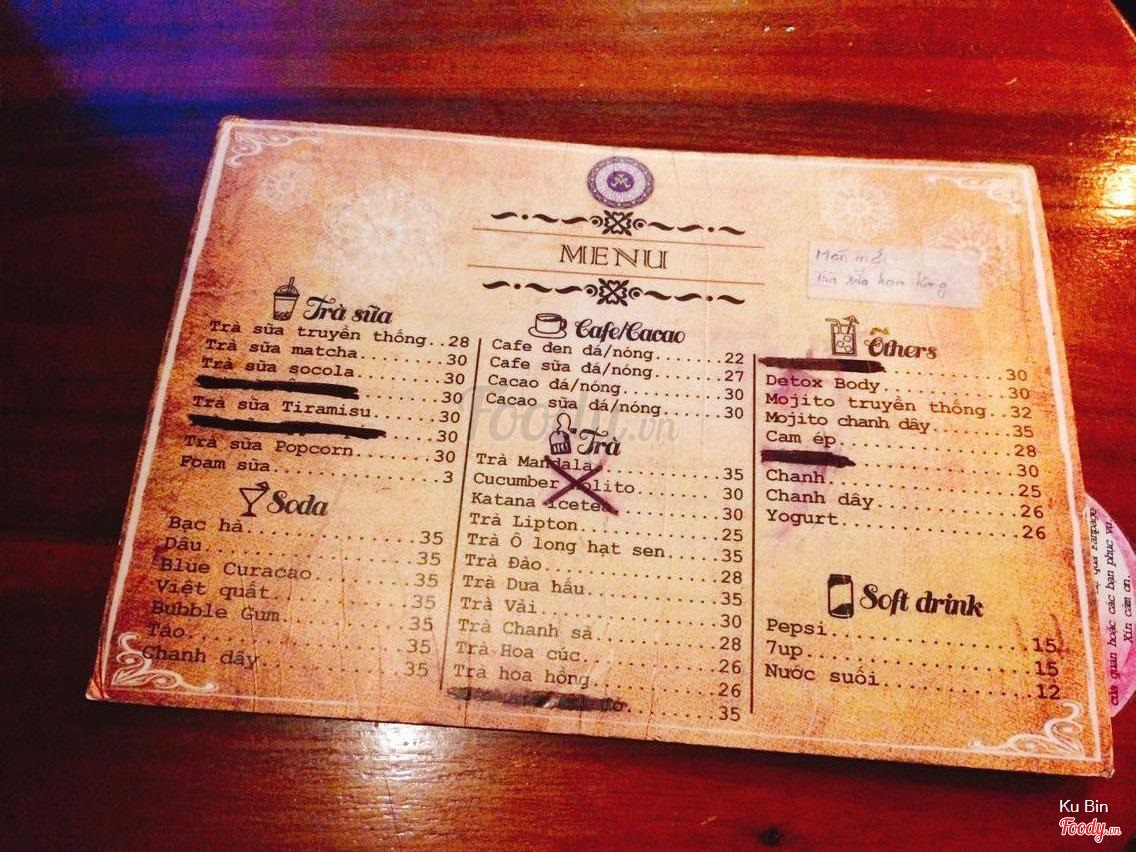 MENU
Món mới:
Trà sữa hoa hồng
Trà sữa
Trà sữa truyền thống..28
Trà sữa matcha..........30
Trà sữa socola..........30
..........30
Trà sữa Tiramisu.......30
..........30
Trà sữa Popcorn.........30
Foam sữa.................3
Soda
Bạc hà..................35
Dâu.....................35
Blue Curacao...........35
Việt quất..............35
Bubble Gum.............35
Táo.....................35
Chanh dây..............35
Cafe/Cacao
Cafe đen đá/nóng.......22
Cafe sữa đá/nóng.......27
Cacao đá/nóng..........30
Cacao sữa đá/nóng......30
Trà
Trà Mandala.............35
Cucumber Molito........30
Katana icetea..........30
Trà Lipton..............25
Trà Ô long hạt sen.....35
Trà Đào.................28
Trà Dưa hấu.............35
Trà Vải.................30
Trà Chanh sả...........28
Trà Hoa cúc.............26
Trà hoa hồng...........26
..........35
Others
..........30
Detox Body..............30
Mojito truyền thống..32
Mojito chanh dây.......35
Cam ép..................28
..........30
Chanh...................25
Chanh dây...............26
Yogurt..................26
Soft drink
Pepsi...................15
7up.....................15
Nước suối..............12
qua Fanpage
của quán hoặc các bạn phục vụ.
Xin cảm ơn.
Foody.vn
Ku Bin
Foody.vn